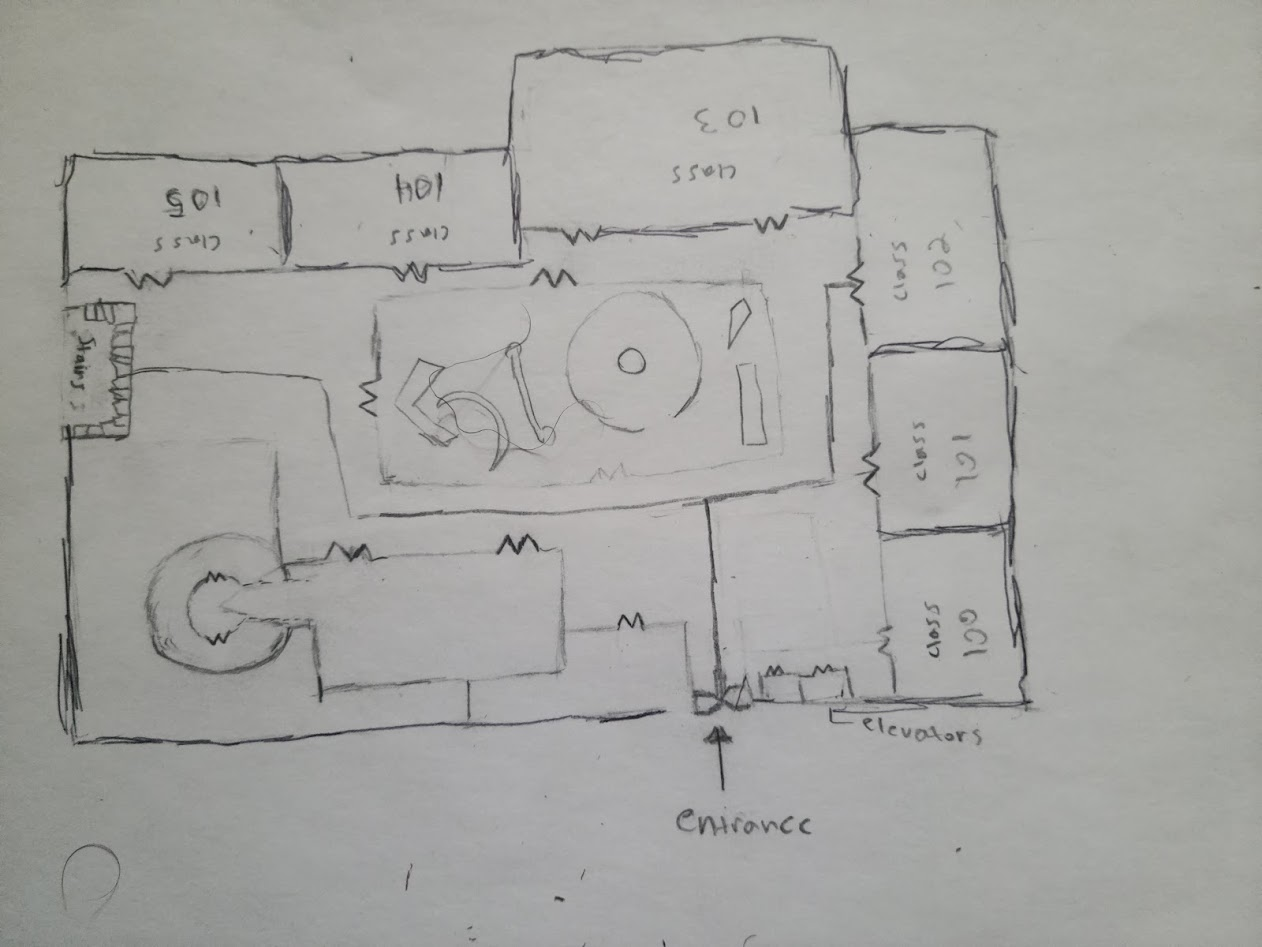 103
class
105
class
104
class
class
102
Stairs
class
101
class
100
elevators
entrance